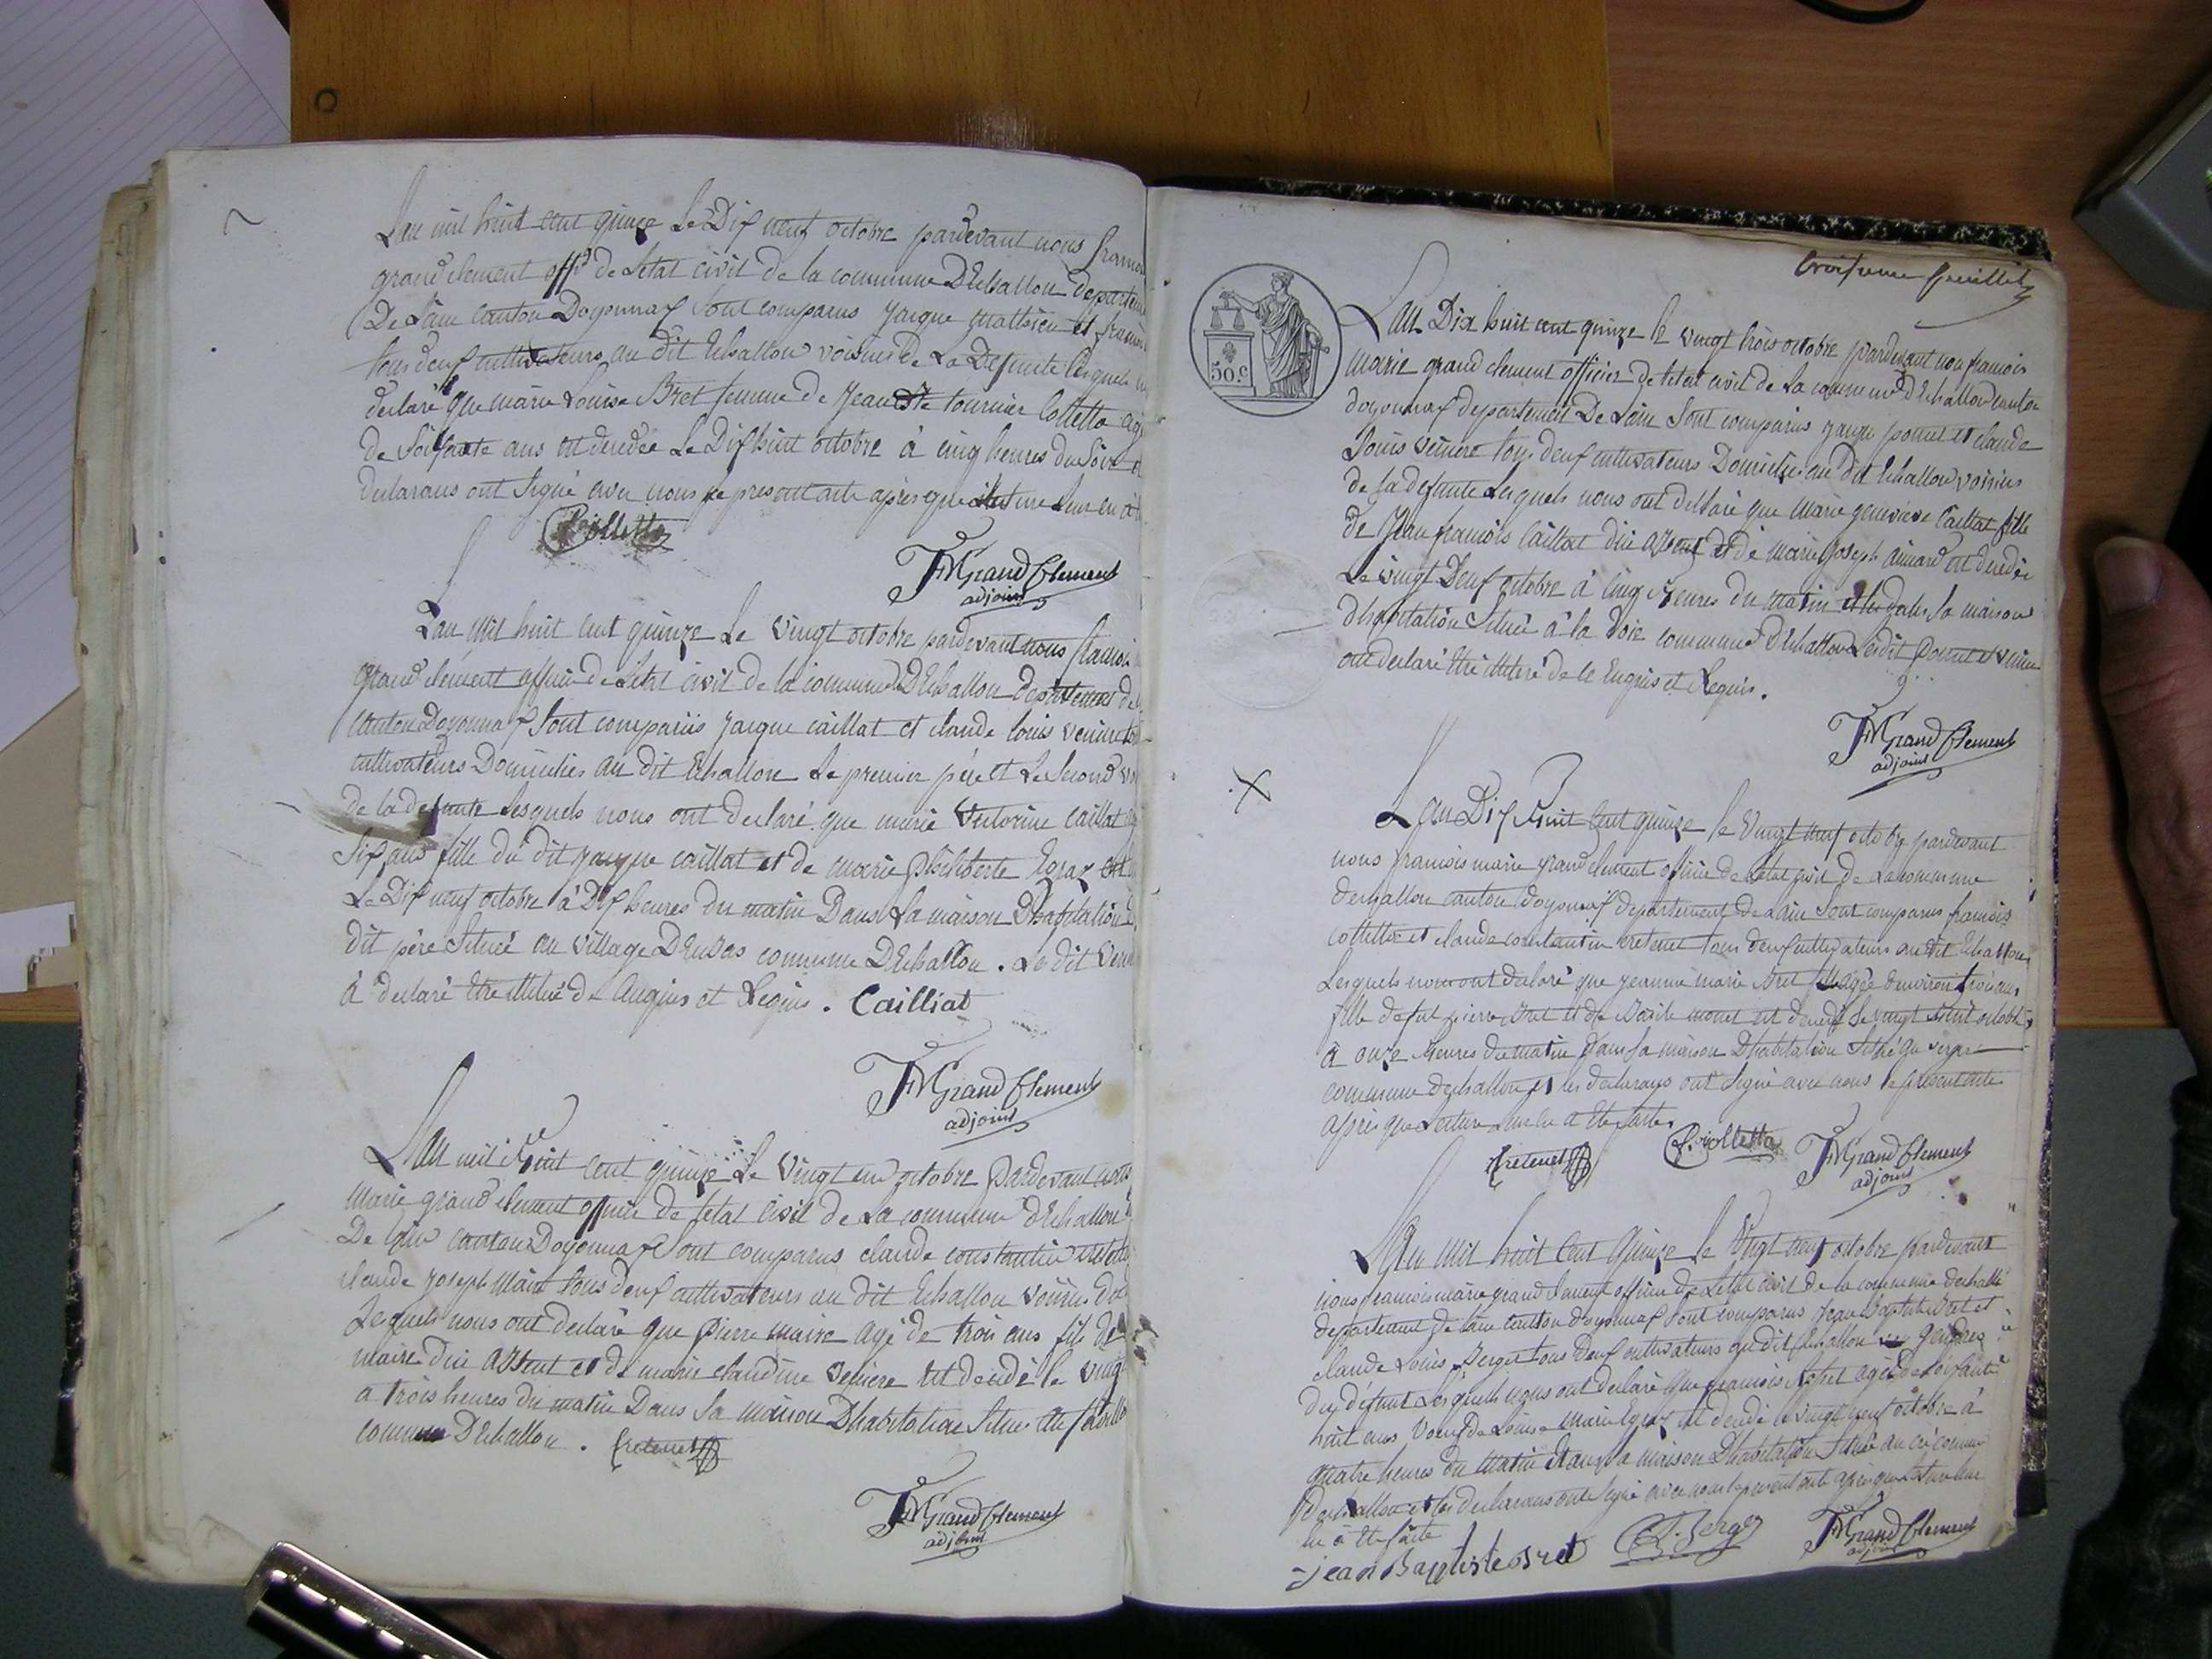 Lan mil huit cent quinze Le Dix neuf octobre pardevant nous francoi
grand clement offr de Letat civil de la commune DEchallon departeme
De Lain Canton Doyonnax Sont comparus jacque mathieu et francois
tous deux cultivateurs au dit Echallon voisins de La Defunte lesquels
declaré que marie Louise Bret femme de jean Bte tournier Colletta agé
de Soixante ans est decedée Le Dix huit octobre à cinq heures du Soir
declarans ont Signé avec nous le present acte apres que lecture leur en à
Colletta
FMGrand Clement
adjoint
Lan Mil huit cent quinze Le vingt octobre pardevant nous francoi
grand clement officier de Létat civil de la commune DEchallon Departement de
Canton Doyonnax Sont comparus jacque caillat et claude louis veniere
cultivateurs Domicilies au dit Echallon Le premier père et Le Second
de la defunte Lesquels nous ont declaré que marie victorine caillat
Six ans fille du dit jacque caillat et de marie philiberte Egraz
Le Dix neuf octobre à Dix heures du matin Dans La maison Dhabitation
dit père Située au village commune DEchallon . Le dit
à declaré Etre illiteré de Enquis et Requis . Cailliat
FMGrand Clement
adjoint
Lan mil huit cent quinze Le vingt un octobre Pardevant nous
Marie grand clement officier de Letat Civil de La commune DEchallon
De Lain Canton Doyonnax Sont comparus claude constantin
claude joseph Maire tous deux cultivateurs au dit Echallon voisins du
Lesquels nous ont declaré que pierre maire agé de trois ans fils de
maire dit et de marie claudine veniere est decedé le ving
a trois heures du matin Dans La maison Dhabitation Situé
commune DEchallon . Cretenet
FMGrand Clement
adjoint
troisieme feuillet
50.c
Lan Dix huit cent quinze le vingt trois octobre pardevant nou francois
Marie grand clement officier de letat civil de la commune dEchallon canton
doyonnax departement De Lain Sont comparus jaque poncet et claude
Louis veniere tous deux cultivateurs Domiciliés au dit Echallon voisins
de la defunte Lesquels nous ont declaré que Marie genevieve Caillat fille
de Jean francois Caillat dit et de marie joseph aimard est decedée
Le vingt Deux octobre à cinq heures du matin dans la maison
dhabitation Située à la Voie commune dEchallon Lesdit Poncet et veniere
ont declaré Etre illiteré de le Enquis et Requis .
FMGrand Clement
adjoint
X
Lan Dix huit Cent quinze le vingt neuf octobre pardevant
nous francois marie grand clement officier de Létat civil de La commune
dechallon canton Doyonnax departement de Lain Sont comparus francois
colletta et claude constantin cretenet tous deux cultivateurs au dit Echallon
Lesquels nous ont declaré que jeanne marie Bret agée denviron trois ans
fille de fut pierre Bret et de monet est decedé Le vingt huit octobre
à onze heures du matin Dans La maison Dhabitation
commune dechallon et les declarans ont Signé avec nous le present acte
après que Lecture Leur en a Ete faite
Cretenet Colletta FMGrand Clement
adjoint
Lan Mil huit Cent quinze le Vingt neuf octobre pardevant
nous francois marie grand clement officier de Letat civil de la commune dechallon
departement de Lain canton doyonnax Sont comparus Jean Baptiste Bret et
claude Louis Berger tous deux cultivateurs au dit Echallon gendres
du defunt Lesquels nous ont declaré que francois agé de Soixante
huit ans veuf de Louise Marie Egraz est decedé le vingt neuf octobre à
quatre heures du Matin dans La maison Dhabitation Située au commune
dechallon et les declarans ont Signé avec nous le present acte apres que lecture leur
en a Ete faite
jean Baptiste Bret CL.Berger FMGrand Clement
adjoint